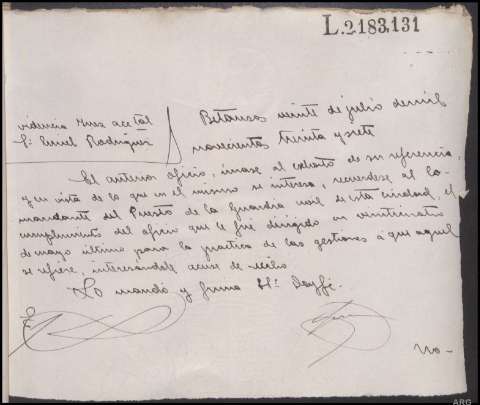 L.2183,131
videncia Juez acctal
Sr. Ernel Rodríguez
Betanzos veinte de julio de mil
novecientos treinta y siete
El anterior oficio, únase al exhorto de su referencia,
y en vista de lo que en el mismo se interesa, recuerdese al Co-
mandante del Puesto de la Guardia civil de esta ciudad, el
cumplimiento del oficio que le fué dirigido en veinticuatro
de mayo último para la practica de las gestiones á que aquel
se refiere, interesandole acuse de recibo.
Lo mandó y firma Sª. Doy fe.
ARG